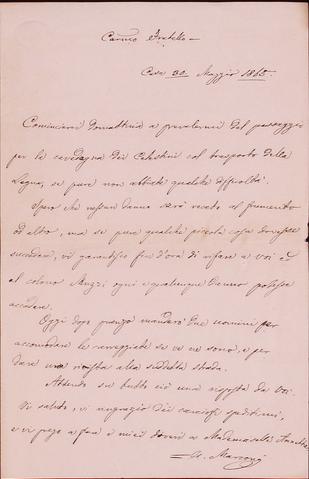 Carmo Fratello —
Casa 30 Maggio 1865.
Comincierei domattina a prevalermi del passaggio
per la cavedagna dei Celestini col trasporto della
legna, se pure non avete qualche difficoltà.
Spero che nessun danno sarà recato al frumento
od altro, ma se pure qualche piccola cosa dovesse
succedere, vi garantisco fin d'ora di rifare a voi ed
al colono ogni e qualunque danno potesse
accadere.
Oggi dopo pranzo manderò due uomini per
accomodare le carreggiate se ve ne sono, e per
dare una rivista alla suddetta strada.
Attendo su tutto ciò una risposta da voi.
Vi saluto, vi ringrazio dei carciofi speditimi,
e vi prego a fare i miei doveri a Madamigella
Marconi